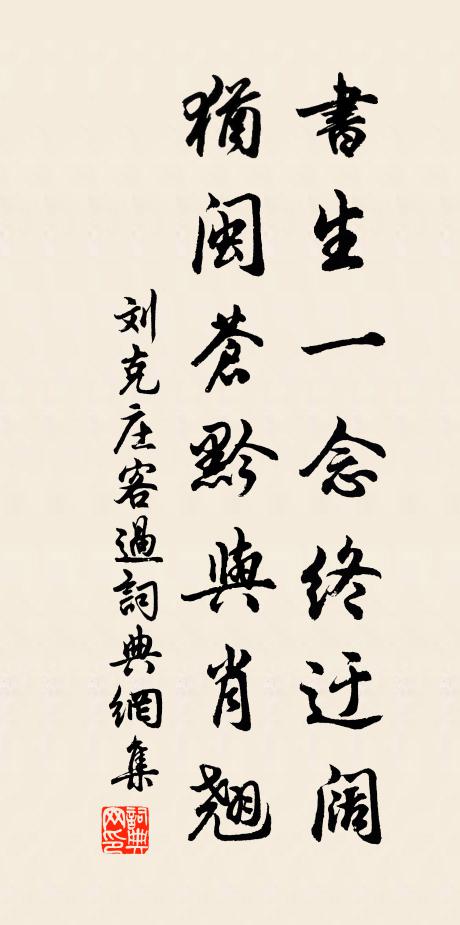 書生一念終迂阔
猶闽蒼黔與肖翘
刘克庄客過詞典網集
詞典網印